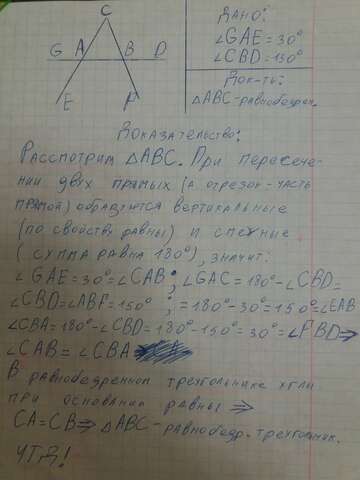 C
ДАНО:
G A B D
∠GAE = 30°
∠CBD = 150°
E F
ДОК-ТЬ:
△ABC-равнобедрен.
ДОКАЗАТЕЛЬСТВО:
РАССМОТРИМ △ABC. ПРИ ПЕРЕСЕЧЕ-
НИИ ДВУХ ПРЯМЫХ (А ОТРЕЗОК-ЧАСТЬ
ПРЯМОЙ) ОБРАЗУЮТСЯ ВЕРТИКАЛЬНЫЕ
(ПО СВОЙСТВУ РАВНЫ) И СМЕЖНЫЕ
(СУММА РАВНА 180°), ЗНАЧИТ:
∠GAE = 30° = ∠CAB; ∠GAC = 180° - ∠CBD =
∠CBD = ∠ABF = 150° ; = 180° - 30° = 150° = ∠EAB
∠CBA = 180° - ∠CBD = 180° - 150° = 30° = ∠FBD ⇒
∠CAB = ∠CBA
В РАВНОБЕДРЕННОМ ТРЕУГОЛЬНИКЕ УГЛЫ
ПРИ ОСНОВАНИИ РАВНЫ ⇒
CA = CB ⇒ △ABC-РАВНОБЕДР. ТРЕУГОЛЬНИК.
ЧТД!